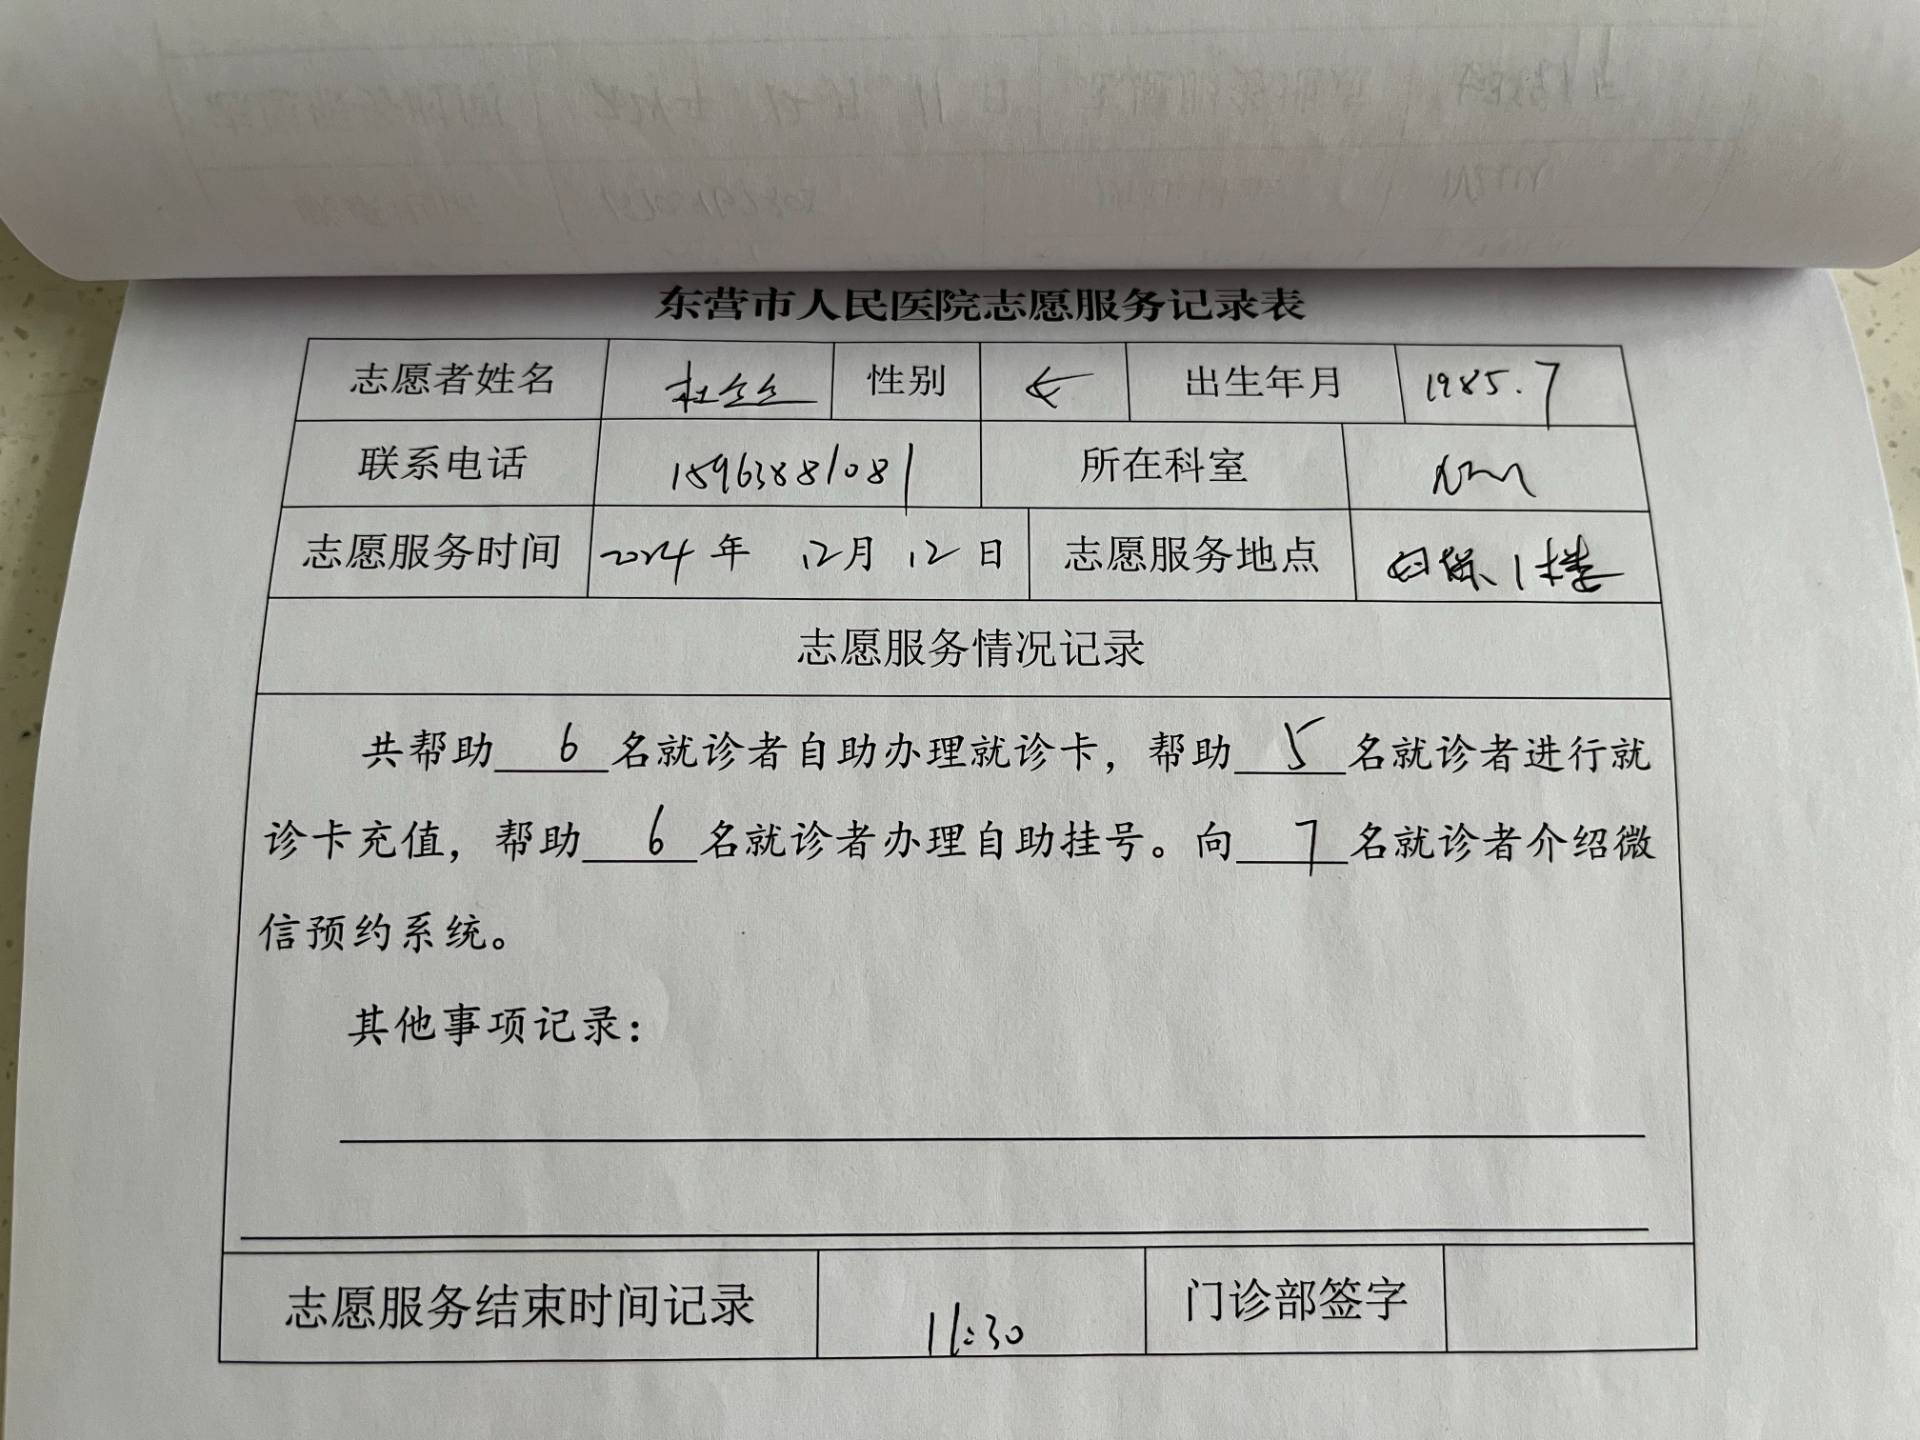 东营市人民医院志愿服务记录表
志愿者姓名 杜 性别 女 出生年月 1985.7
联系电话 18963881081 所在科室
志愿服务时间 2024年 12月 12日 志愿服务地点 1楼
志愿服务情况记录
共帮助 6 名就诊者自助办理就诊卡，帮助 5 名就诊者进行就
诊卡充值，帮助 6 名就诊者办理自助挂号。向 7 名就诊者介绍微
信预约系统。
其他事项记录：
志愿服务结束时间记录 11:30 门诊部签字